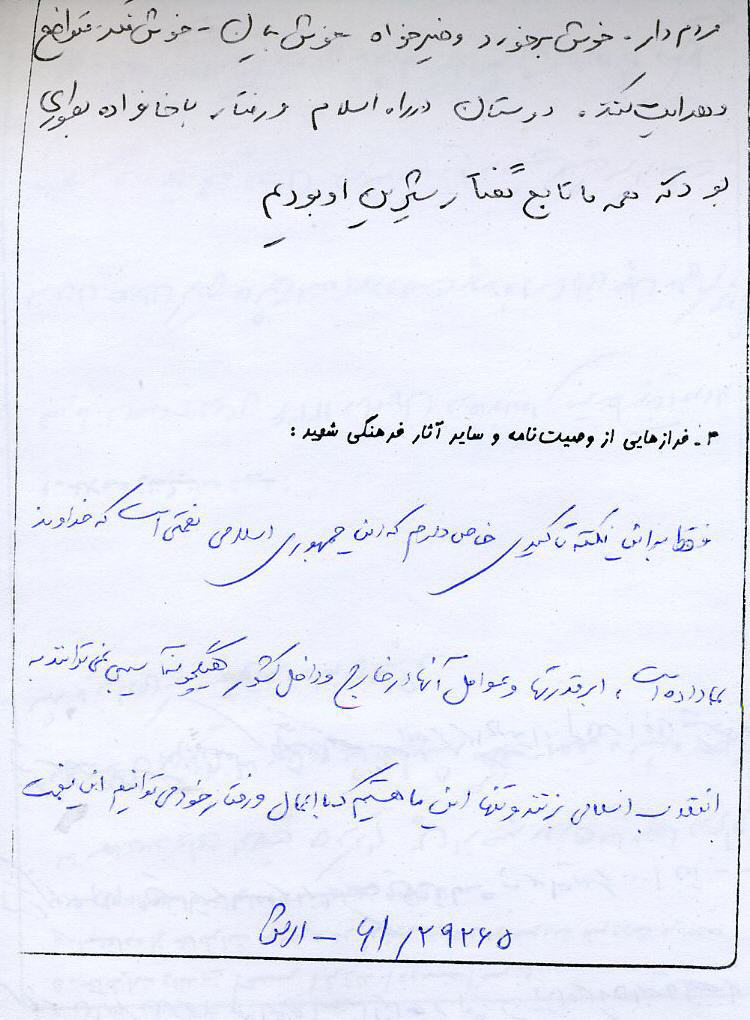 مردم دار - خوش برخورد و خیرخواه خوش بیان - خوش فکر متواضع
و هدایت کننده دوستان در راه اسلام و رفتار با خانواده بطوری
بود که همه ما تابع گفتار شیرین او بودیم
۳- فرازهایی از وصیت‌نامه و سایر آثار فرهنگی شهید :
فقط بر این نکته تاکیدی خاص دارم که این جمهوری اسلامی نعمتی است که خداوند
بما داده است ، ابرقدرتها و عوامل آنها در خارج و داخل کشور هیچگونه آسیبی نمی توانند به
انقلاب اسلامی بزنند و تنها این ما هستیم که با اعمال و رفتار خود می توانیم این نعمت
۶۱/۲۹۲۶۵ - ارتش